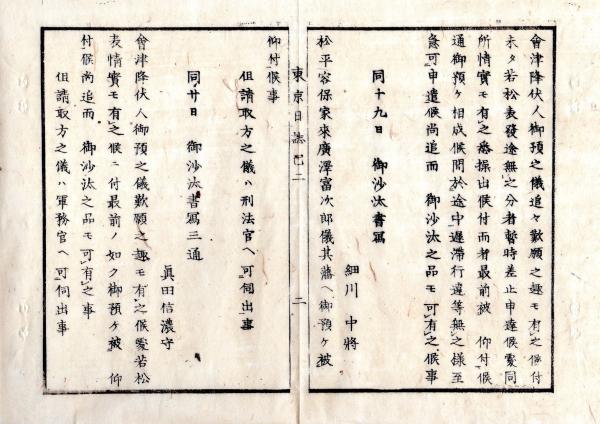 會津降伏人御預之儀追々歎願之趣モ有之候付
未タ若松表發途無之分者暫時差止申達候處同
所情實モ有之悉操出候付而者最前被 仰付候
通御預ケ相成候間於途中遲滯行違等無之様至
急可申遣候尚追而 御沙汰之品モ可有之候事
同十九日 御沙汰書寫
細川中將
松平容保家來廣澤富次郎儀其藩ヘ御預ケ被
東京日誌 巳二 二
仰付候事
但請取方之儀ハ刑法官ヘ可伺出事
同廿日 御沙汰書寫三通
眞田信濃守
會津降伏人御預之儀歎願之趣モ有之候處若松
表情實モ有之候ニ付最前ノ如ク御預ケ被 仰
付候尚追而 御沙汰之品モ可有之事
但請取方之儀ハ軍務官ヘ可伺出事